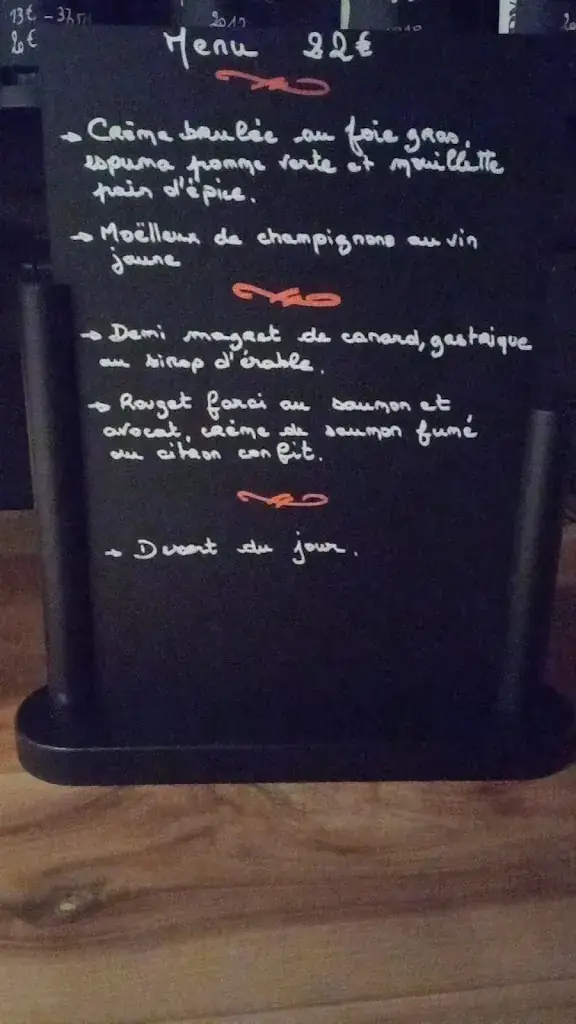 13€ - 37
20€
2017
Menu 22€
→ Crème brulée au foie gras,
espuma pomme verte et mouillette
pain d'épice.
→ Moëlleux de champignons au vin
jaune
→ Demi magret de canard, gastrique
au sirop d'érable.
→ Rouget farci au saumon et
avocat, crème de saumon fumé
au citron confit.
→ Dessert du jour.